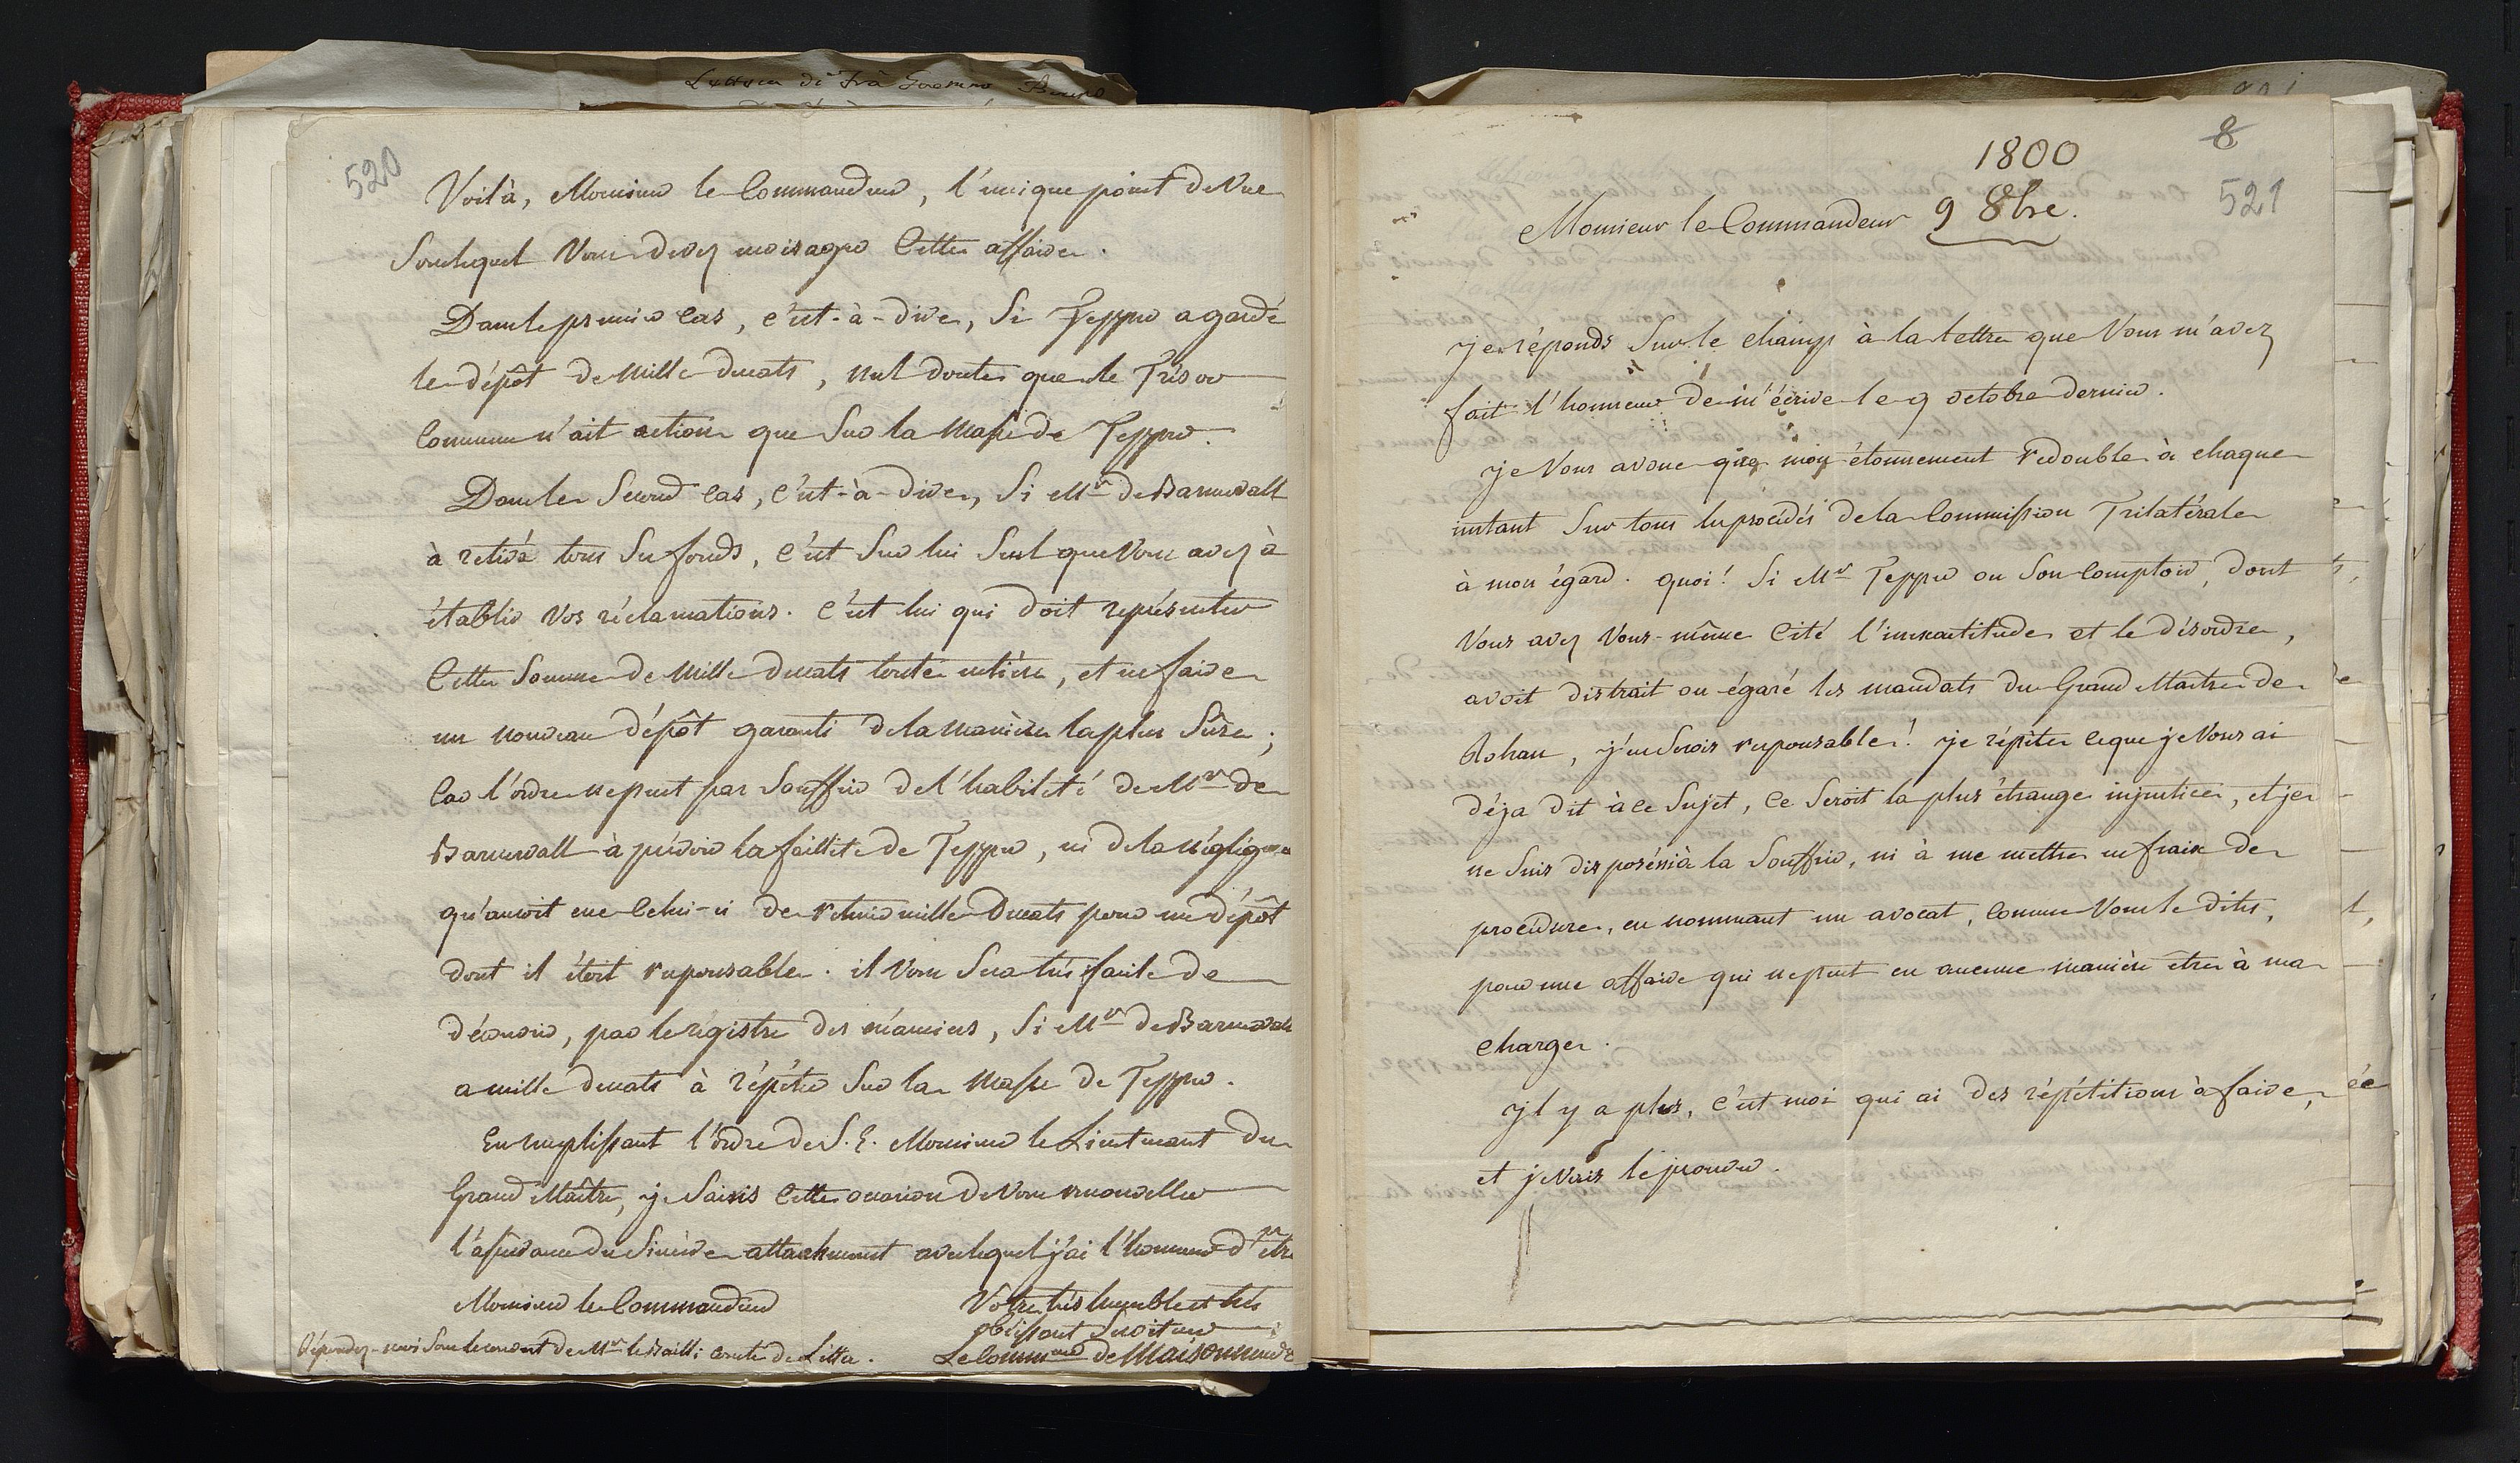 Lettera di Frà
520
Voilà, Monsieur le Commandeur, l'unique point de Vue
Sous lequel Vous devez envisager Cette affaire.
Dans le premier Cas, c'est-à-dire, Si Tepper a gardé
le dépôt de Mille ducats, nul doute que le Trésor
Commun n'ait action que Sur la Masse de Tepper.
Dans le Second Cas, C'est-à-dire, Si Mr de Barnewall
à retiré tous Ses fonds, C'est Sur lui Seul que Vous avez à
établir Vos réclamations. C'est lui qui doit représenter
Cette Somme de Mille Ducats toute entière, et en faire
un nouveau dépôt garanti de la Manière la plus Sûre;
Car l'ordre ne peut pas Souffrir de l'habileté de Mr de
Barnewall à prévoir la faillite de Tepper, ni de la négligence
qu'auroit eue Celui-ci de retenir mille Ducats pour un dépôt
dont il étoit responsable. il Vous Sera très facile de
découvrir, par le régistre des créanciers, Si Mr de Barnewall
a mille ducats à répéter Sur la Masse de Tepper.
En remplissant l'ordre de S. E. Monsieur le Lieutenant du
Grand Maître, je Saisis Cette occasion de Vous renouveller
l'assurance du Sincère attachement avec lequel j'ai l'honneur d'être
Monsieur le Commandeur
Votre très humble et très
obéissant Serviteur
Répondez-moi Sous le couvert de Mr le Bailli Comte de Litta.
Le Commeur de Maisonneuve
1800
8
521
Monsieur le Commandeur 9 8bre.
je réponds Sur le champ à la lettre que Vous m'avez
fait l'honneur de m'écrire le 9 octobre dernier.
je Vous avoue que mon étonnement redouble à chaque
instant Sur tous les procédés de la Commission Trilatérale
à mon égard. quoi! Si Mr Tepper ou Son Comptoir, dont
Vous avez Vous-même Cité l'inexactitude et le désordre,
avoit distrait ou égaré les mandats du Grand Maître de
Rohan, j'en Serois responsable! je répète ce que je Vous ai
déja dit à ce Sujet, Ce Seroit la plus étrange injustice, et je
ne Suis disposé ni à la Souffrir, ni à me mettre en fraix de
procédure, en nommant un avocat, Comme Vous le dites,
pour une affaire qui ne peut en aucune manière être à ma
charge.
jl y a plus, C'est moi qui ai des répétitions à faire,
et je Vais le prouver.